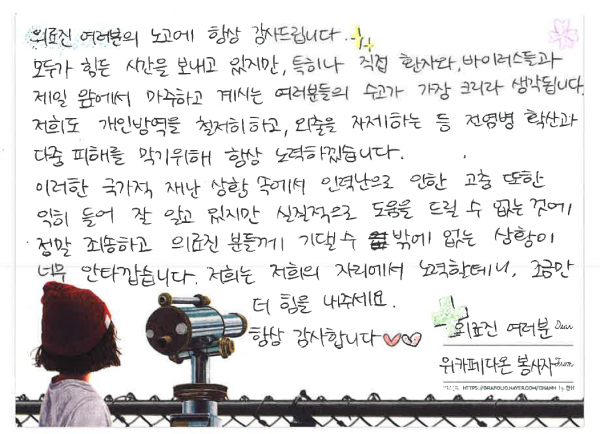 의료진 여러분의 노고에 항상 감사드립니다.
모두가 힘든 시간을 보내고 있지만, 특히나 직접 환자와, 바이러스들과
제일 앞에서 마주하고 계시는 여러분들의 수고가 가장 크리라 생각됩니다.
저희도 개인방역을 철저히하고, 외출을 자제하는 등 전염병 확산과
다중 피해를 막기위해 항상 노력하겠습니다.
이러한 국가적 재난 상황 속에서 인력난으로 인한 고충 또한
익히 들어 잘 알고 있지만 실질적으로 도움을 드릴 수 없는것에
정말 죄송하고 의료진 분들께 기댈 수 밖에 없는 상황이
너무 안타깝습니다. 저희는 저희의 자리에서 노력할테니, 조금만
더 힘을 내주세요.
항상 감사합니다♡♡
의료진 여러분 Dear
위카페다온 봉사자 From